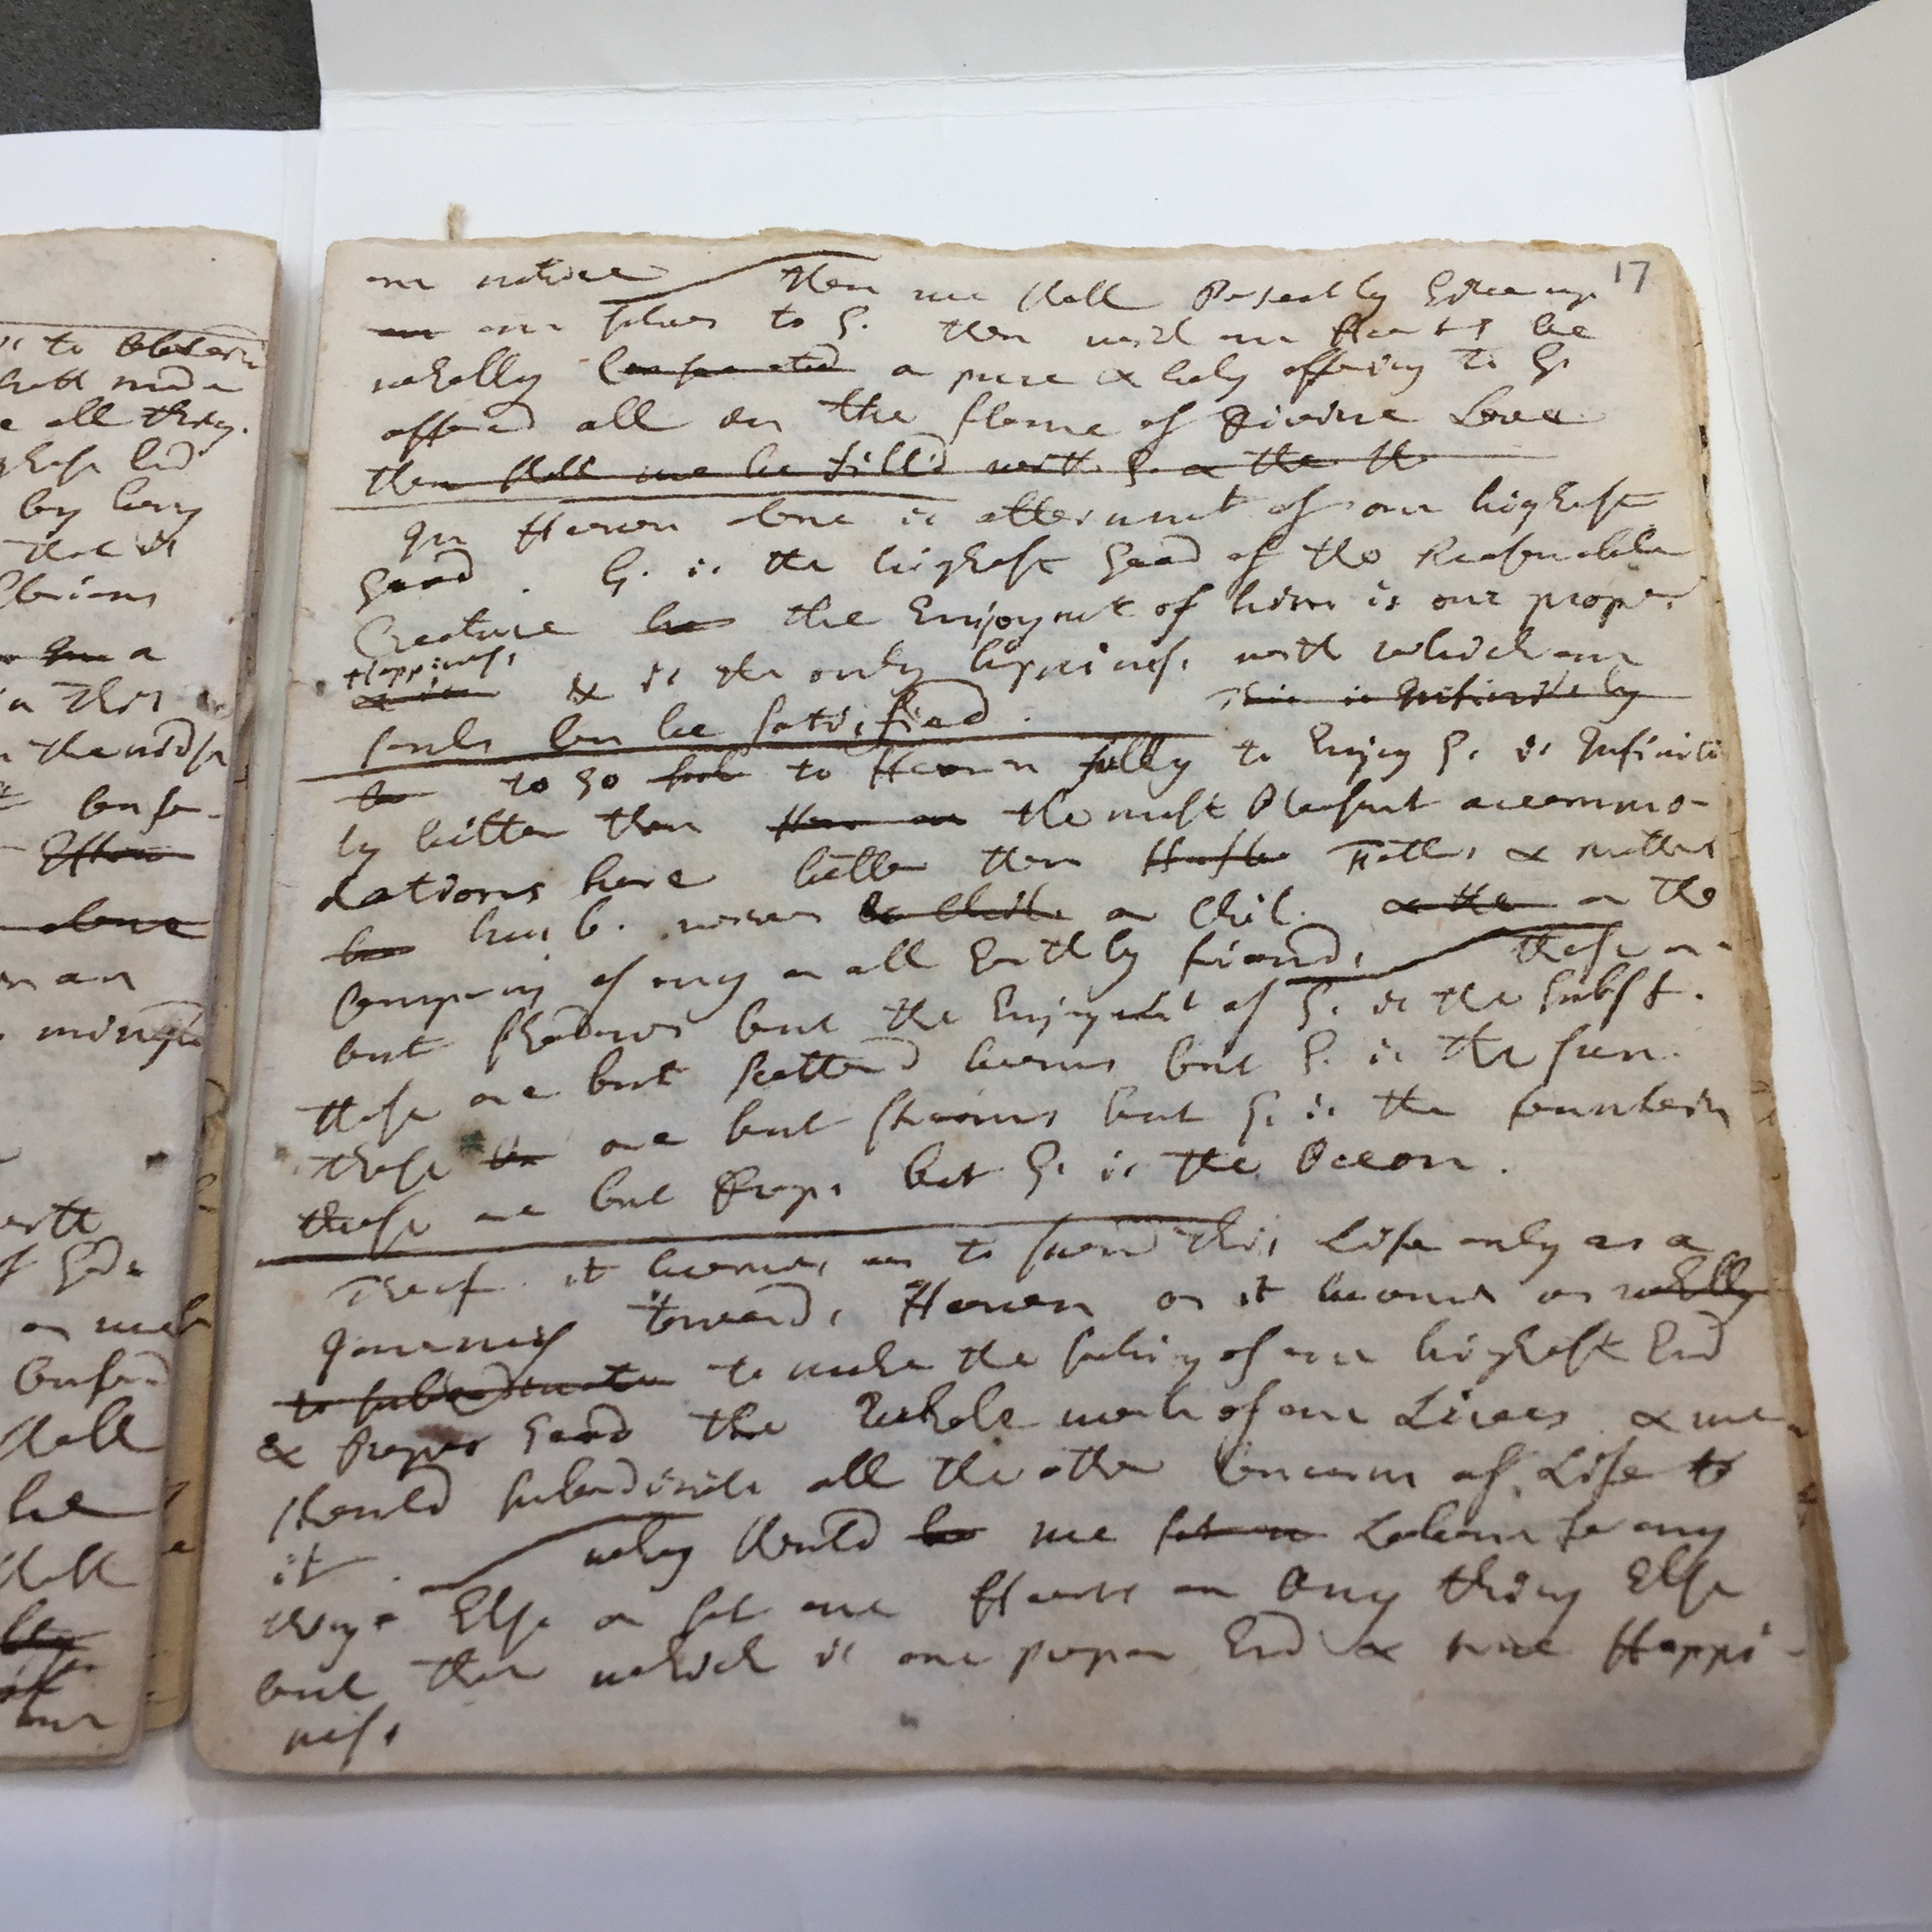 17
our nature then we shall Perfectly Give up
our our selves to G. then will our Hearts be
wholly Consecrated a pure & holy offering to G.
offered all on the flame of Divine Love
then shall we be fill'd with G. & the th
In Heaven alone is attainmt of our highest
Good . G. is the highest Good of the Reasonable
Creature he the Enjoymt of him is our proper
Happiness
& is the only happiness with which our
souls Can be satisfied . This is Infinitely
to go to Heaven fully to Enjoy G. is Infinite
ly better than the most Pleasant accommo-
dations here better than Fathers & mothers
husb. wives or Chil. or the
Company of any or all Earthly friends these are
but shadows but the Enjoymt of G. is the subst.
these are but scatterd beams but G. is the sun.
these are but streams but G. is the fountain
these are but Drops but G. is the Ocean.
Theref. it becomes us to spend this Life only as a
Journey towards Heaven as it becomes us wholly
to subordinate to make the seeking of our highest End
& Proper Good the Whole work of our Lives & we
should subordinate all the other Concerns of Life to
it . why should we set our Labour for any
thing Else or set our Hearts on Any thing Else
but that which is our proper End & true Happi-
ness
is to
all thing.
by
that it
a
in this
Conse-
with
of God.
shall
be
shall
our